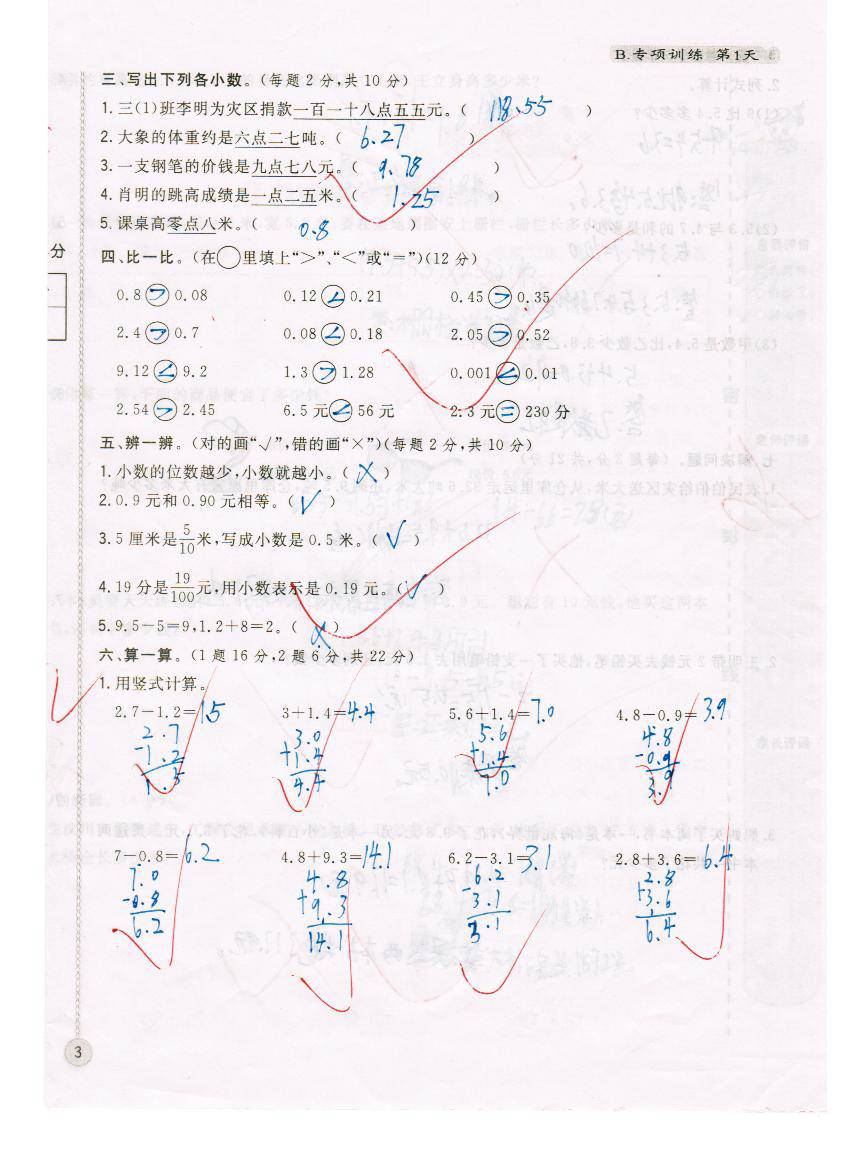 B.专项训练 第1天
三、写出下列各小数。(每题2分,共10分)
1.三(1)班李明为灾区捐款一百一十八点五五元。( 118.55 )
2.大象的体重约是六点二七吨。( 6.27 )
3.一支钢笔的价钱是九点七八元。( 9.78 )
4.肖明的跳高成绩是一点二五米。( 1.25 )
5.课桌高零点八米。( 0.8 )
分
四、比一比。(在○里填上“>”、“<”或“=”)(12分)
0.8 > 0.08 0.12 < 0.21 0.45 > 0.35
2.4 > 0.7 0.08 < 0.18 2.05 > 0.52
9.12 < 9.2 1.3 > 1.28 0.001 < 0.01
2.54 > 2.45 6.5元 < 56元 2.3元 = 230分
五、辨一辨。(对的画“√”,错的画“×”)(每题2分,共10分)
1.小数的位数越少,小数就越小。( × )
2.0.9元和0.90元相等。( √ )
3.5厘米是5/10米,写成小数是0.5米。( √ )
4.19分是19/100元,用小数表示是0.19元。( √ )
5.9.5-5=9,1.2+8=2。( × )
六、算一算。(1题16分,2题6分,共22分)
1.用竖式计算。
2.7-1.2=1.5 3+1.4=4.4 5.6+1.4=7.0 4.8-0.9=3.9
2.7 3.0 5.6 4.8
-1.2 +1.4 +1.4 -0.9
1.5 4.4 7.0 3.9
7-0.8=6.2 4.8+9.3=14.1 6.2-3.1=3.1 2.8+3.6=6.4
7.0 4.8 6.2 2.8
-0.8 +9.3 -3.1 +3.6
6.2 14.1 3.1 6.4
3